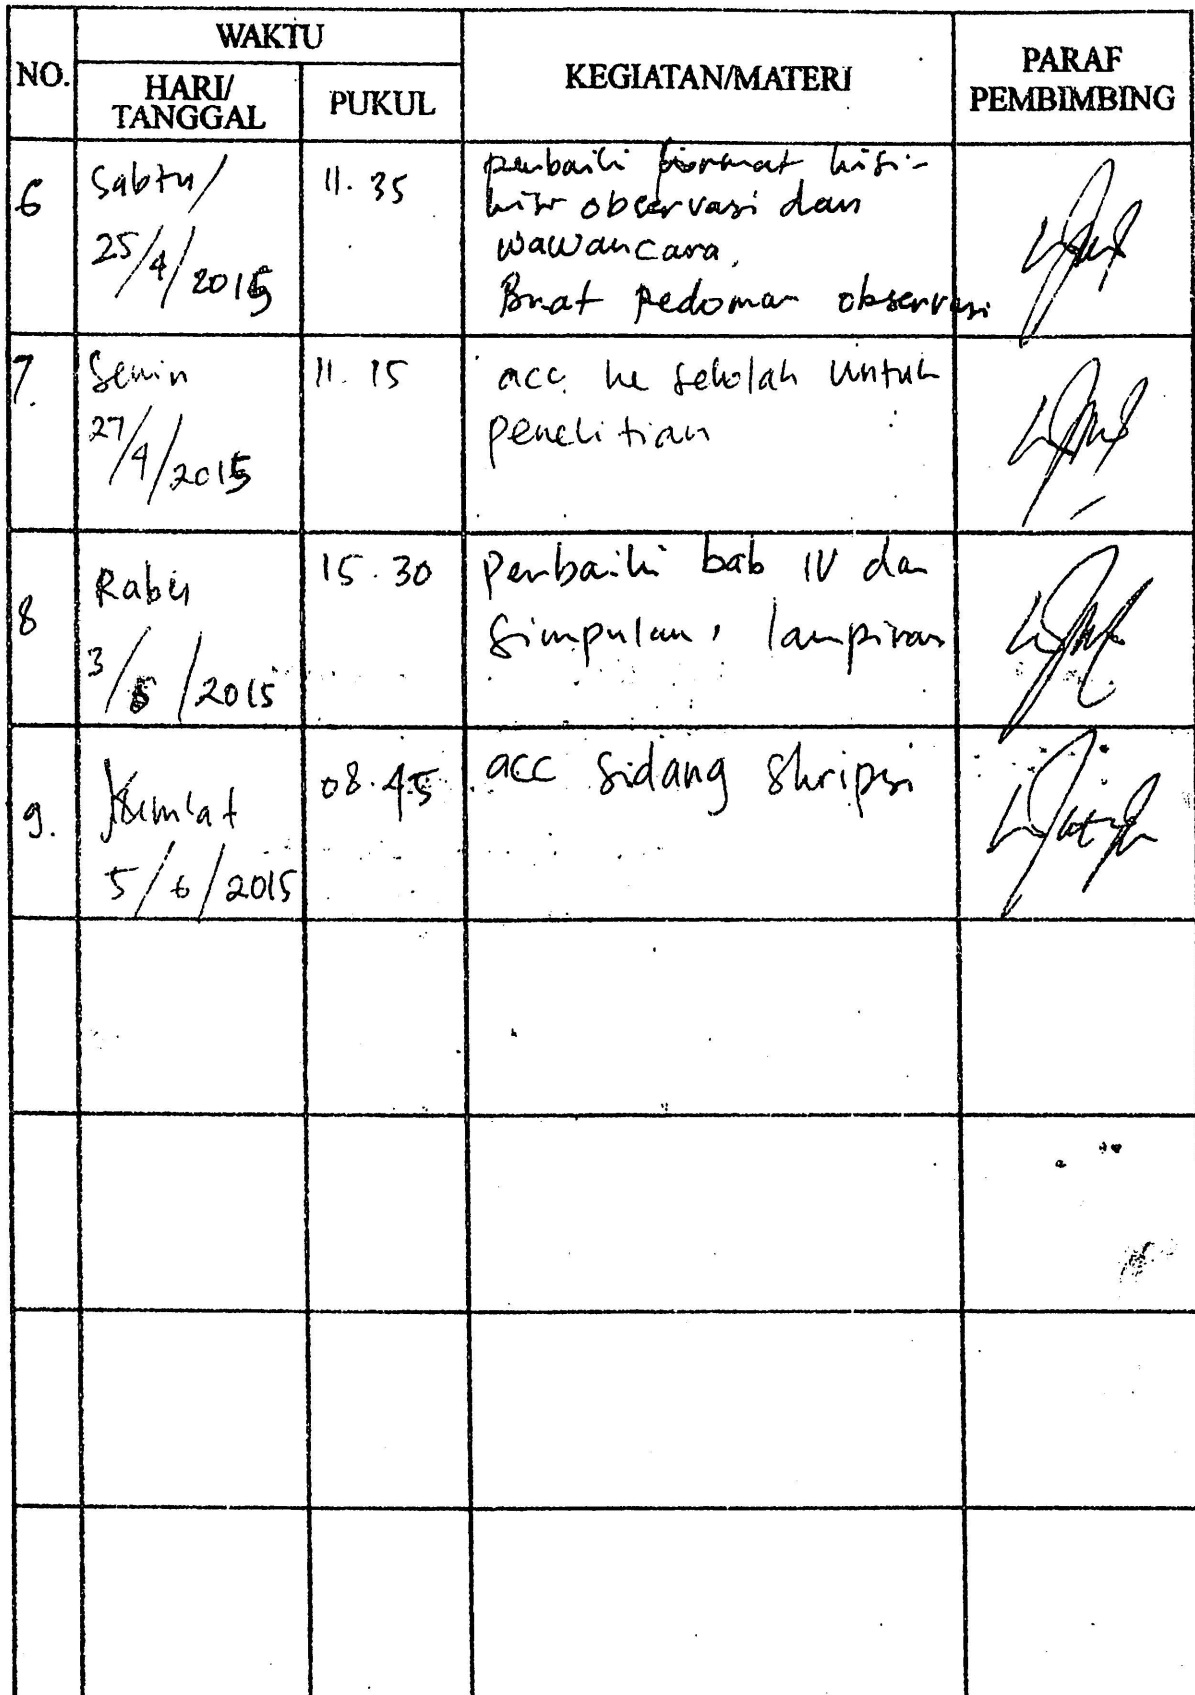 NO.
WAKTU
HARI/
TANGGAL
PUKUL
KEGIATAN/MATERI
PARAF
PEMBIMBING
6
Sabtu/
25/4/2015
11.35
perbaiki format kisi-
kisi observasi dan
wawancara.
Buat pedoman observasi
7.
Senin
27/4/2015
11.15
acc ke sekolah untuk
penelitian
8
Rabu
3/6/2015
15.30
perbaiki bab IV dan
simpulan, lampiran
9.
Jumat
5/6/2015
08.45
acc sidang skripsi